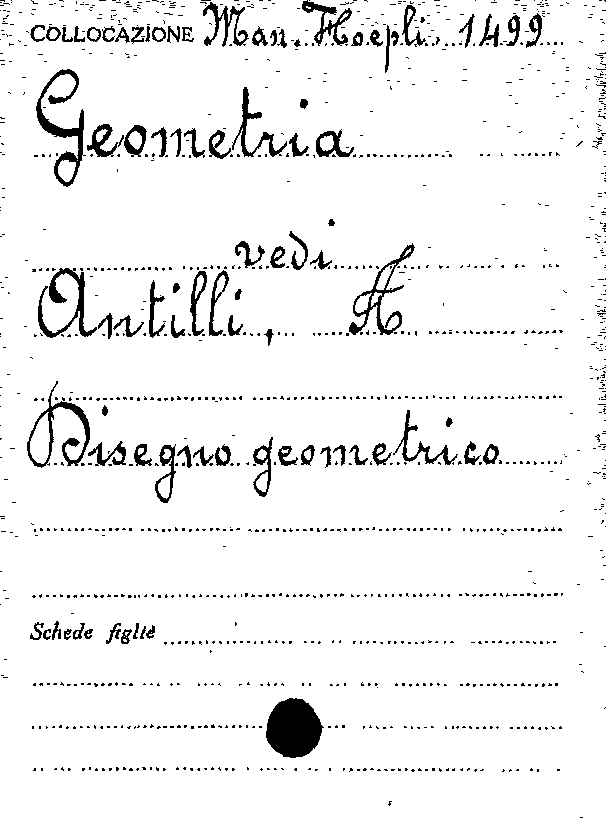 COLLOCAZIONE Man. Hoepli. 1499
Geometria
vedi
Antilli, A
Disegno geometrico
Schede figlie